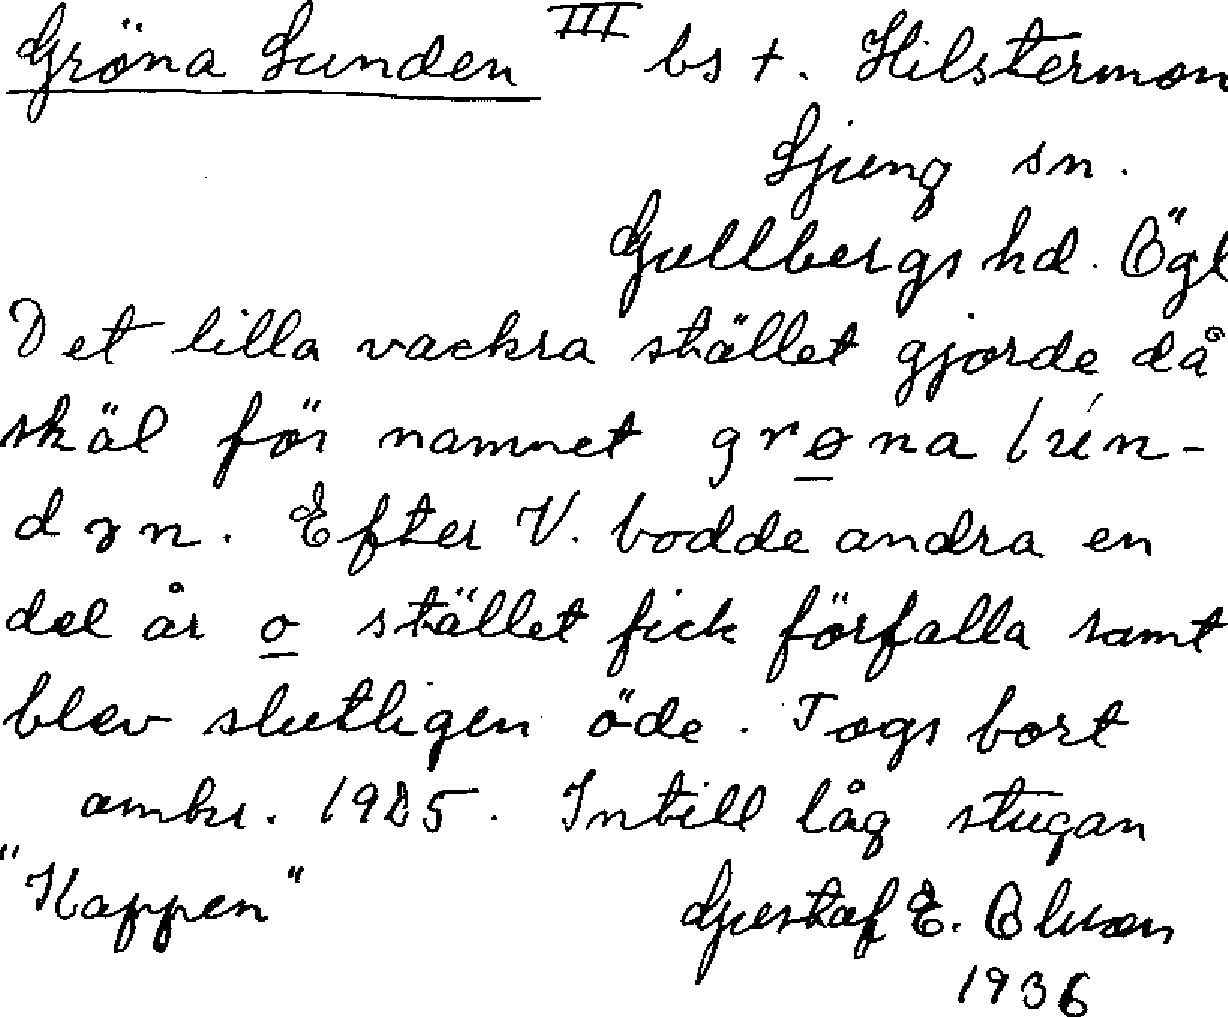 Gröna Lunden III bs t. Hilstermon
Ljung sn.
Gullbergs hd. Ögl
Det lilla vackra stället gjorde då
skäl för namnet grøna lún-
dɘn. Efter V. bodde andra en
del år o stället fick förfalla samt
blev slutligen öde. Togs bort
omkr. 1925. Intill låg stugan
"Kappen"
Gustaf E. Olsson
1936